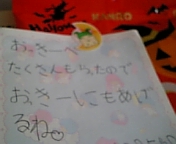 おっきーへ
たくさんもらったので
おっきーにもあげ
るね